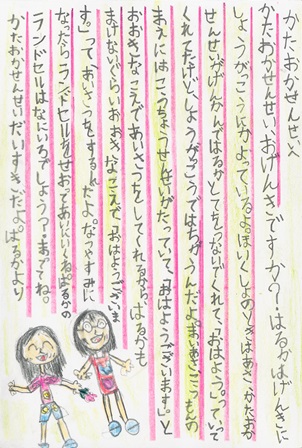 かたおかせんせいへ
かたおかせんせい、おげんきですか?はるかはげんきに
しょうがっこうにかよっているよ。ほいくしょのときはあさ、かたおか
せんせいがげんかんではるかとてをつないでくれて、「おはよう。」っていって
くれてたけど、しょうがっこうではちがうんだよ。まいあさ、こうもんの
まえにはこうちょうせんせいがたっていて、「おはようございます。」と
おおきなこえであいさつをしてくれるから、はるかも
まけないぐらいおおきなこえで、「おはようございま
す。」ってあいさつをするんだよ。なつやすみに
なったらランドセルをせおってあいにいくね。はるかの
ランドセルはなにいろでしょう?まっててね。
かたおかせんせいだいすきだよ。はるかより